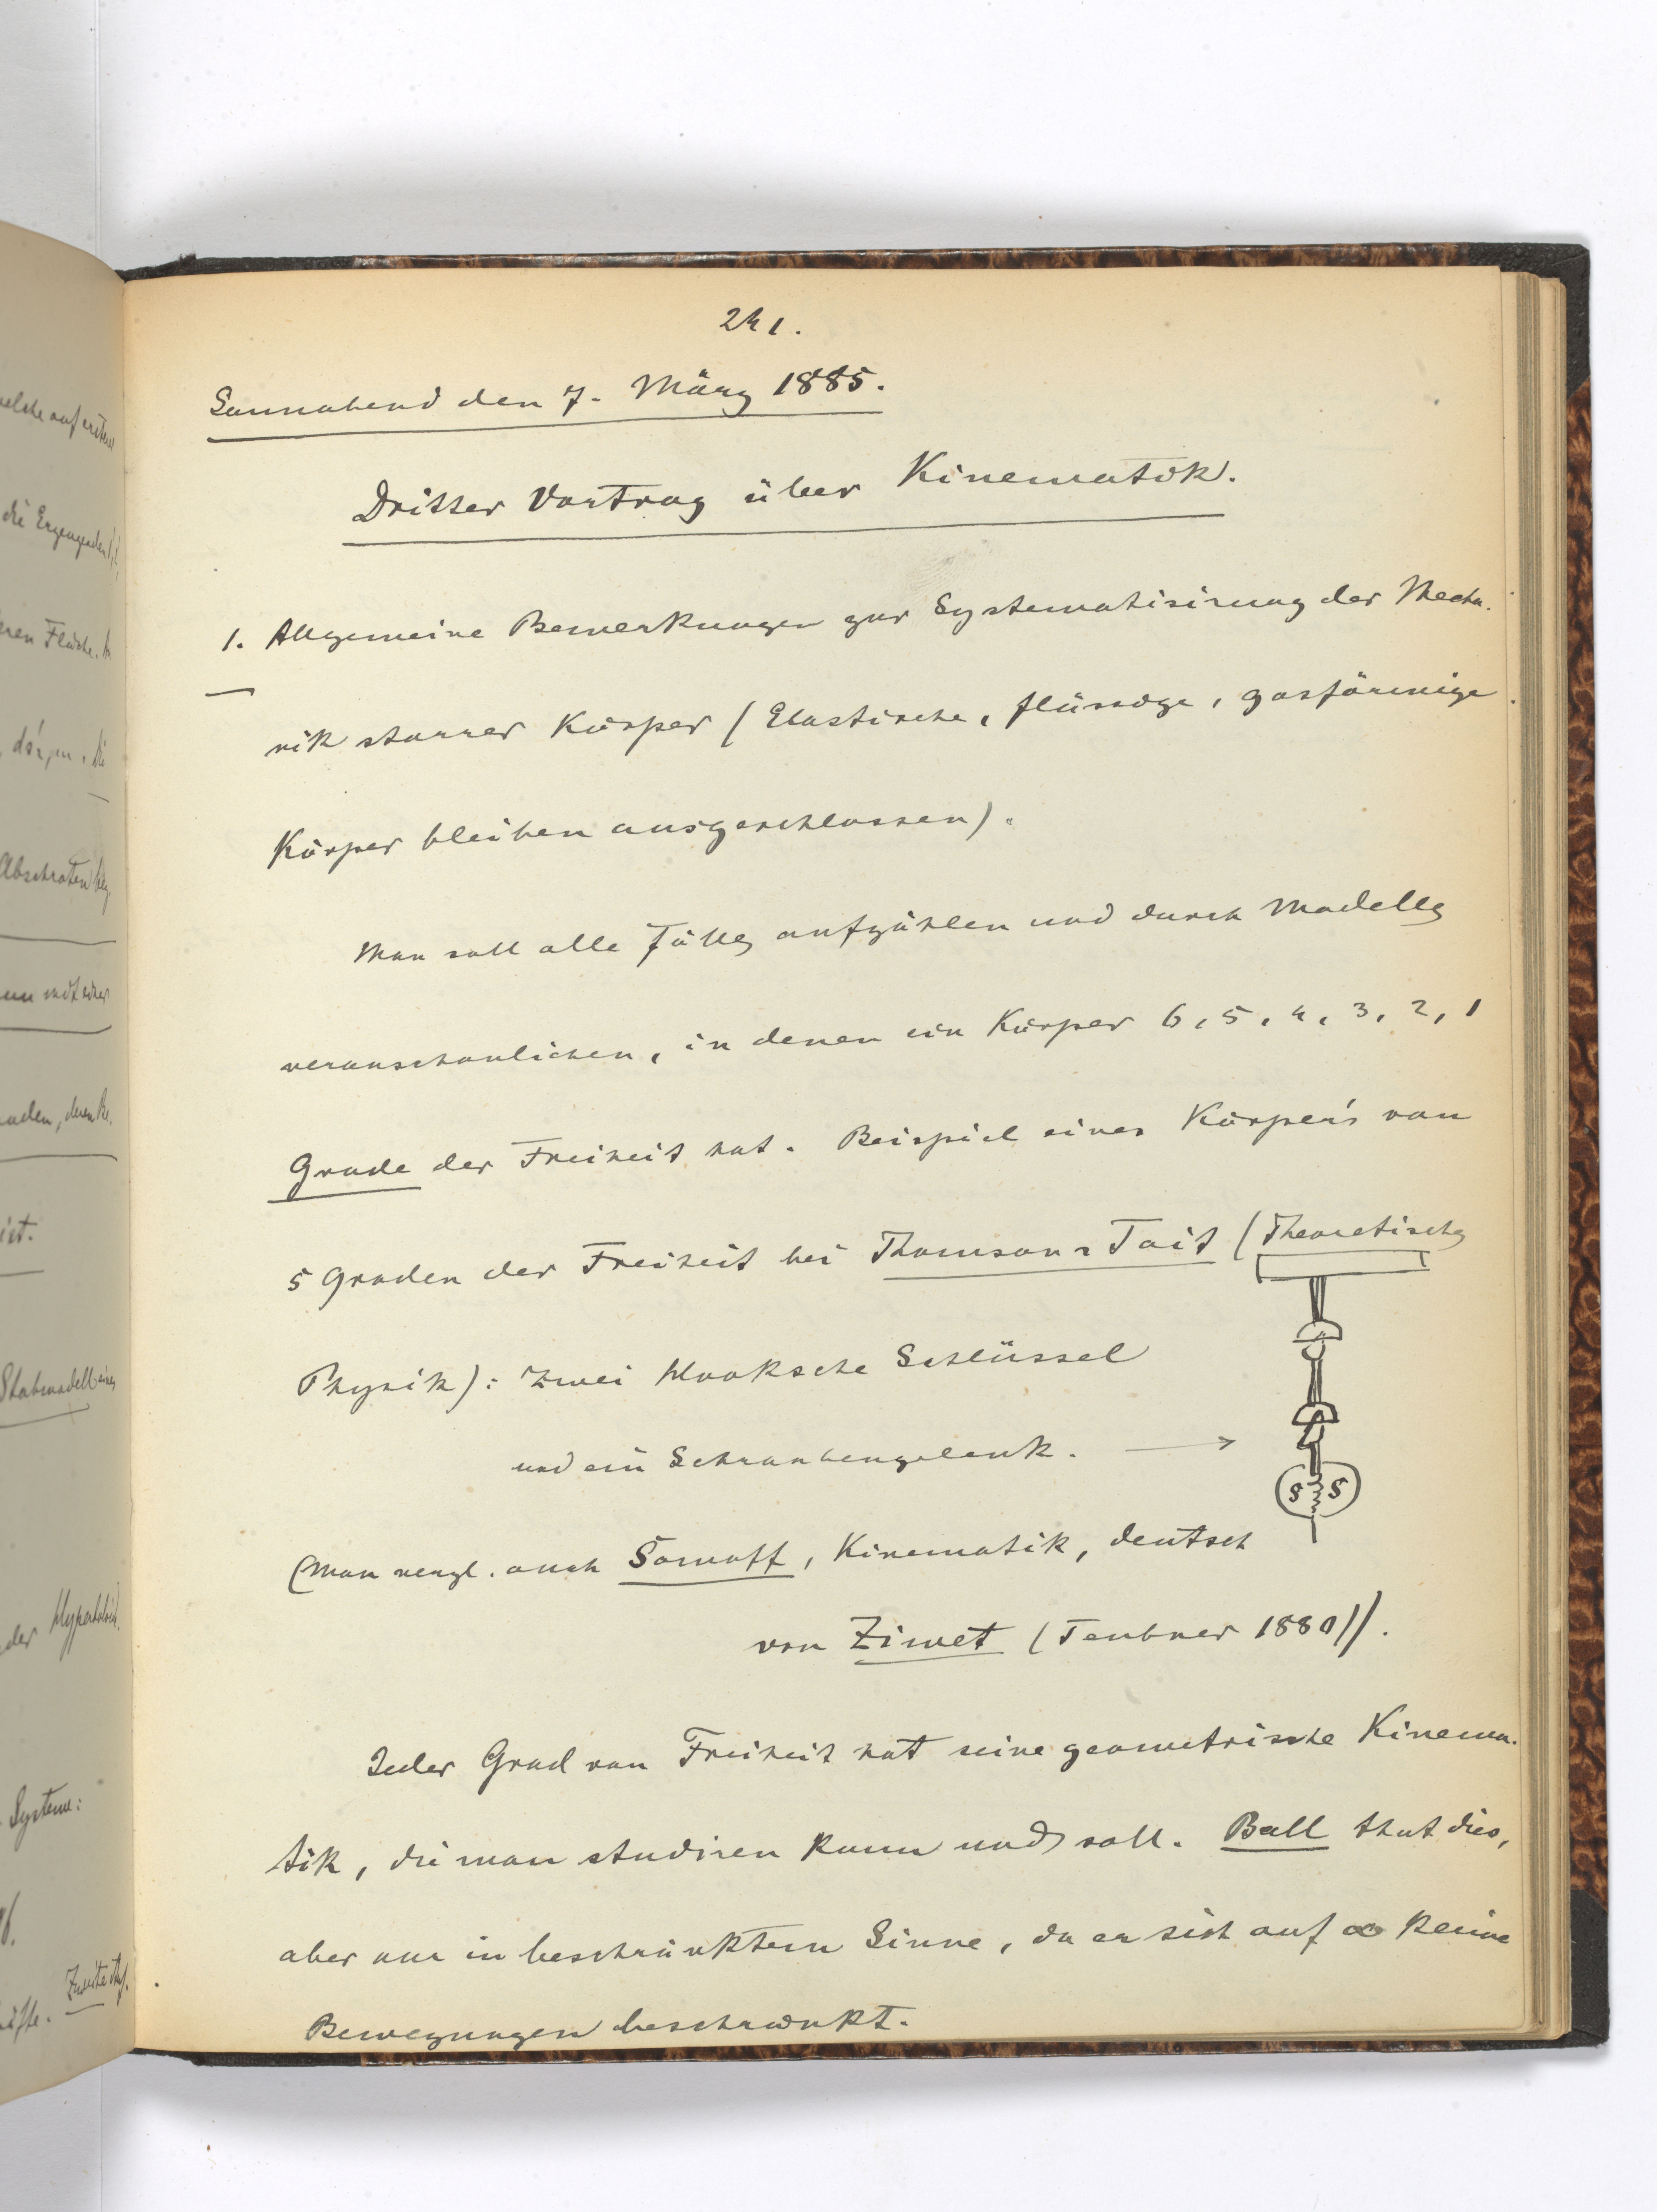 241.
Sonnabend den 7. März 1885.
Dritter Vortrag über Kinematik.
1. Allgemeine Bemerkungen zur Systematisirung der Mecha-
nik starrer Körper (Elastische, flüssige, gasförmige
Körper bleiben ausgeschlossen).
Man soll alle Fälle aufzählen und durch Modelle
veranschaulichen, in denen ein Körper 6, 5, 4, 3, 2, 1
Grade der Freiheit hat. Beispiel eines Körper's von
5 Graden der Freiheit bei Thomson u Tait (Theoretische
Physik): Zwei Hooksche Schlüssel
und ein Schraubengelenk.
(Man vergl. auch Somoff, Kinematik, deutsch
von Ziwet (Teubner 1880)).
Jeder Grad von Freiheit hat seine geometrische Kinema-
tik, die man studiren kann und soll. Ball that dies,
aber nur in beschränktem Sinne, da er sich auf ∞ kleine
Bewegungen beschränkt.
welche auf
die Erzeugenden
Fläche.
ist.
Stabmodell eines
der
Systeme: